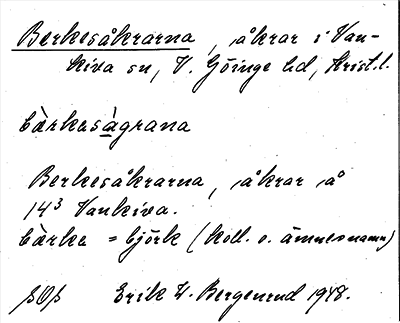 Berkesåkrarna, åkrar i Van-
kiva sn, V. Göinge hd, Krist. l.
bàrkasàgrana
Berkesåkrarna, åkrar på
14³ Vankiva.
bàrke = björk (koll. o. ämnesnamn)
Erik W. Bergenrud 1948.